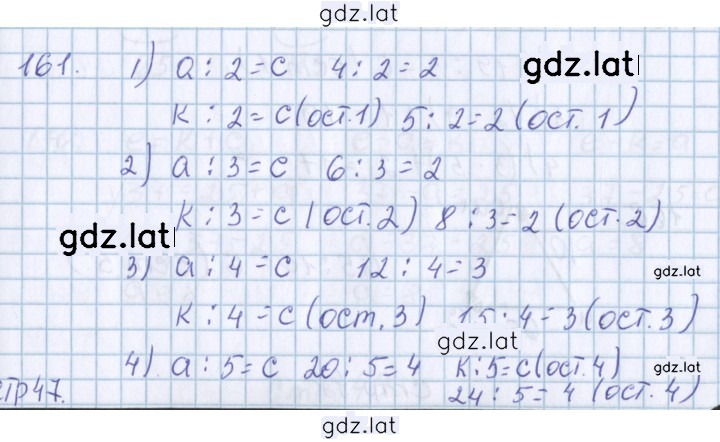 gdz.lat
161. 1) а : 2 = с 4 : 2 = 2 gdz.lat
к : 2 = с (ост. 1) 5 : 2 = 2 (ост. 1)
2) а : 3 = с 6 : 3 = 2
к : 3 = с (ост. 2) 8 : 3 = 2 (ост. 2)
gdz.lat
3) а : 4 = с 12 : 4 = 3 gdz.lat
к : 4 = с (ост. 3) 15 : 4 = 3 (ост. 3)
gdz.lat
4) а : 5 = с 20 : 5 = 4 к : 5 = с (ост. 4) gdz.lat
стр 47. 24 : 5 = 4 (ост. 4)
gdz.lat